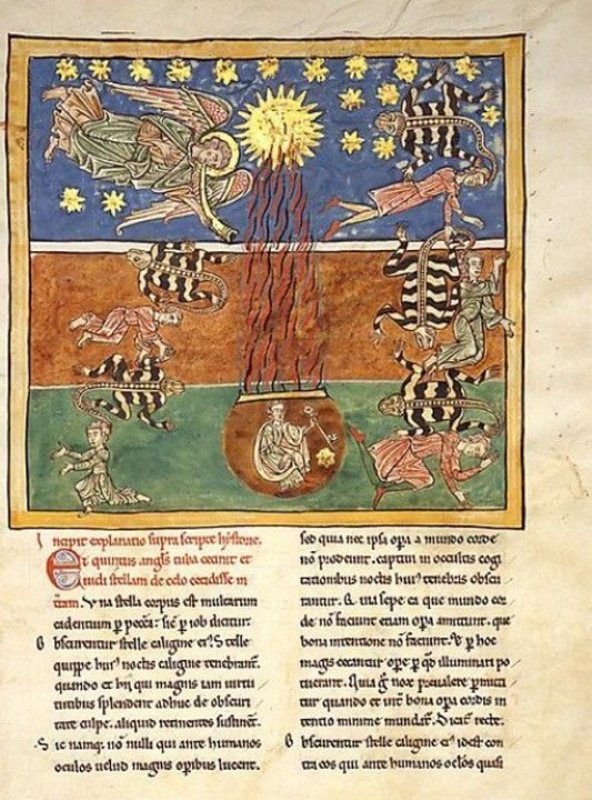 Incipit explanatio supra scripte hystorie.
Et quintus angls tuba cecinit et
uidi stellam de celo cecidisse in
tram. Vna stella corpus est multarum
cadentium p pecca: sic p iob dicitur.
Obscurentur stelle caligine ei. Stelle
quippe hui noctis caligine tenebrant.
quando et hii qui magnis iam uirtu
tibus splendent adhuc de obscuri
tate culpe. aliquid retinentes sustinet.
Sic namq; no nulli qui ante humanos
oculos uelud magnis opibus lucent.
sed quia nec ipsa opa a mundo corde
no prodeunt. captiui in occultis cogi
tationibus noctis hui tenebris obscu
rantur. Q uia sepe ea que mundo cor
de no faciunt etiam opa amittunt. que
bona intentione no faciunt. V p hoc
magis cecantur ope p qd illuminari po
tuerant. Quia g nox preualere pmitti
tur quando et int bona opa cordis in
tentio minime mundat. Dicat recte.
Obscurentur stelle caligine ei idest con
tra eos qui ante humanos oclos quasi